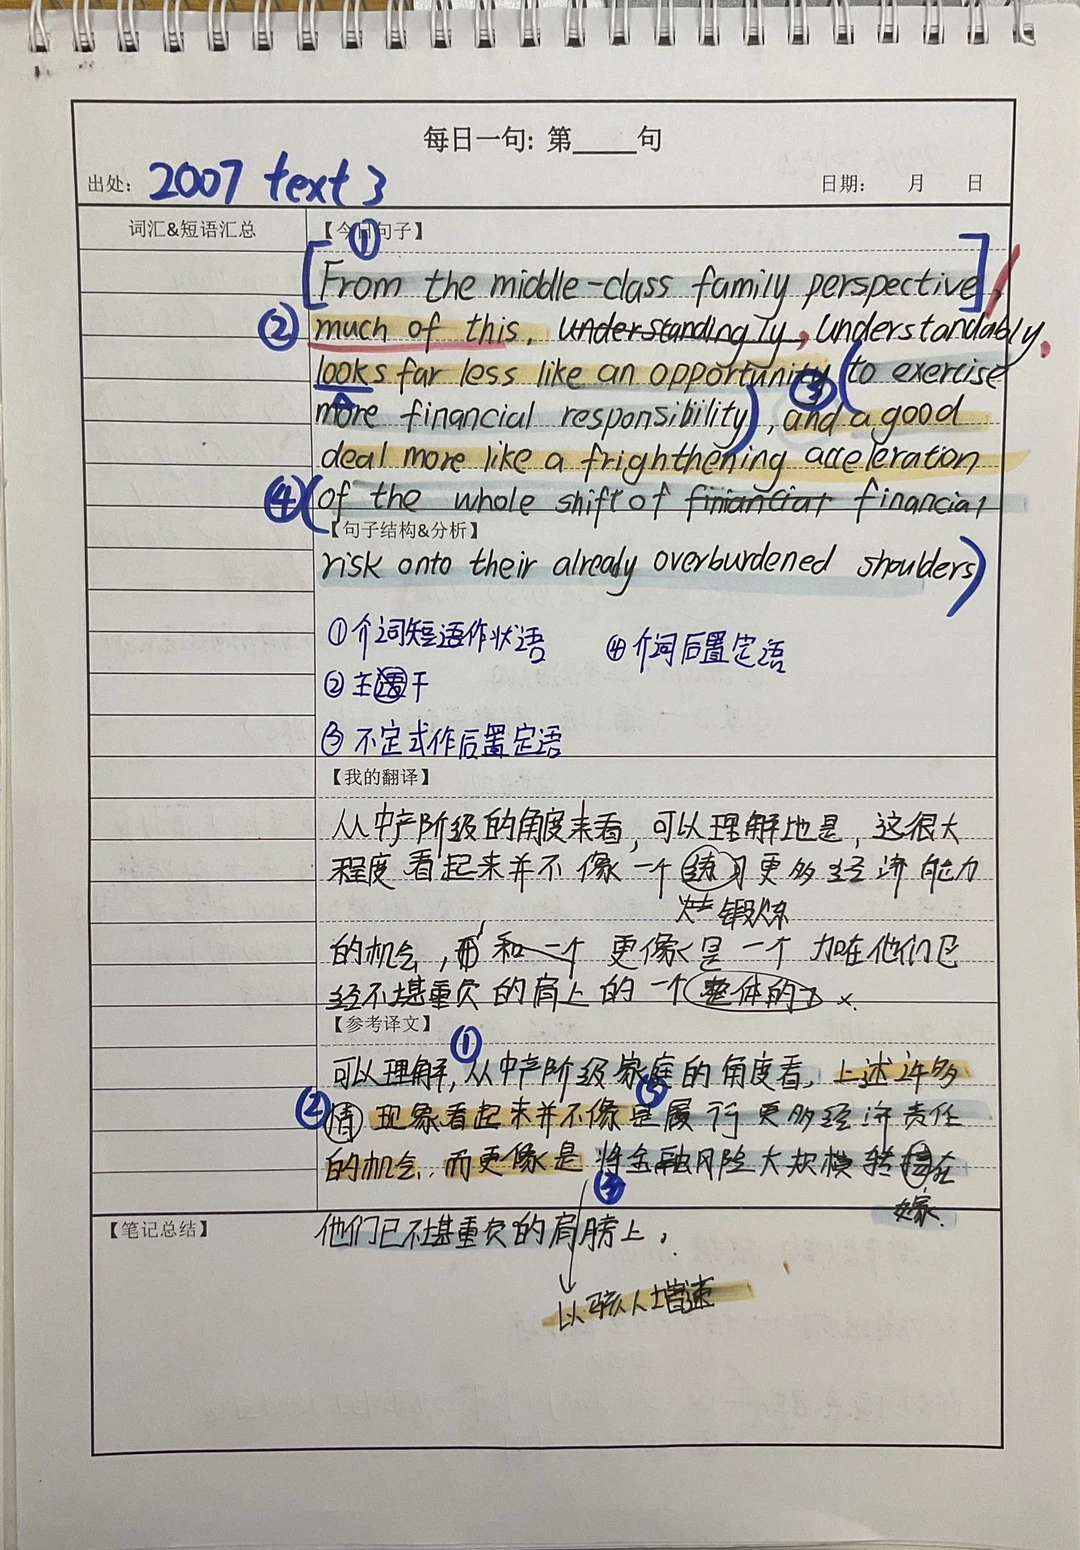 每日一句: 第_____句
出处: 2007 text 3
日期: 月 日
词汇&短语汇总
【今日句子】
①
From the middle-class family perspective,
② much of this, understandingly, understandably,
looks far less like an opportunity (to exercise
③
more financial responsibility), and a good
deal more like a frighthening acceleration
④ (of the whole shift of finiancial financial
【句子结构&分析】
risk onto their already overburdened shoulders)
①介词短语作状语 ④介词后置定语
②主谓干
③不定式作后置定语
【我的翻译】
从中产阶级的角度来看,可以理解地是,这很大
程度看起来并不像一个练习更多经济能力
锻炼
的机会,和一个更像是一个加在他们已
经不堪重负的肩上的一个整体的 ×
【参考译文】
①
可以理解,从中产阶级家庭的角度看,上述许多
②情现象看起来并不像是履行更多经济责任
的机会,而更像是将金融风险大规模转在
③
嫁
【笔记总结】
他们已不堪重负的肩膀上。
以骇人增速